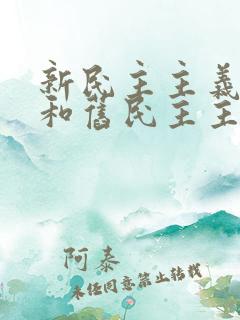 新民主主義
和舊民主主
阿泰
未经同意禁止转载